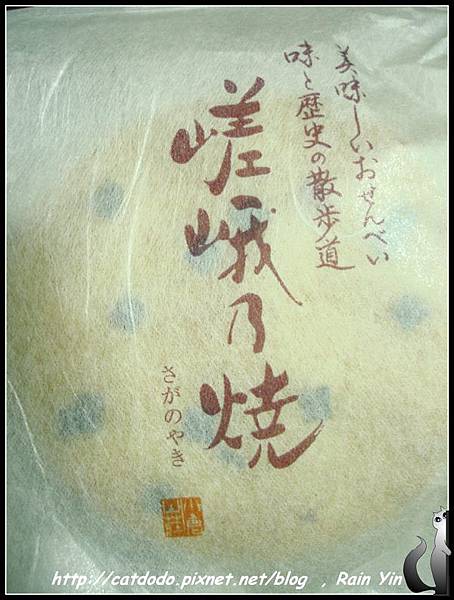 美味しいおせんべい
味と歴史の散歩道
嵯峨乃焼
さがのやき
小倉山荘
http://catdodo.pixnet.net/blog , Rain Yin